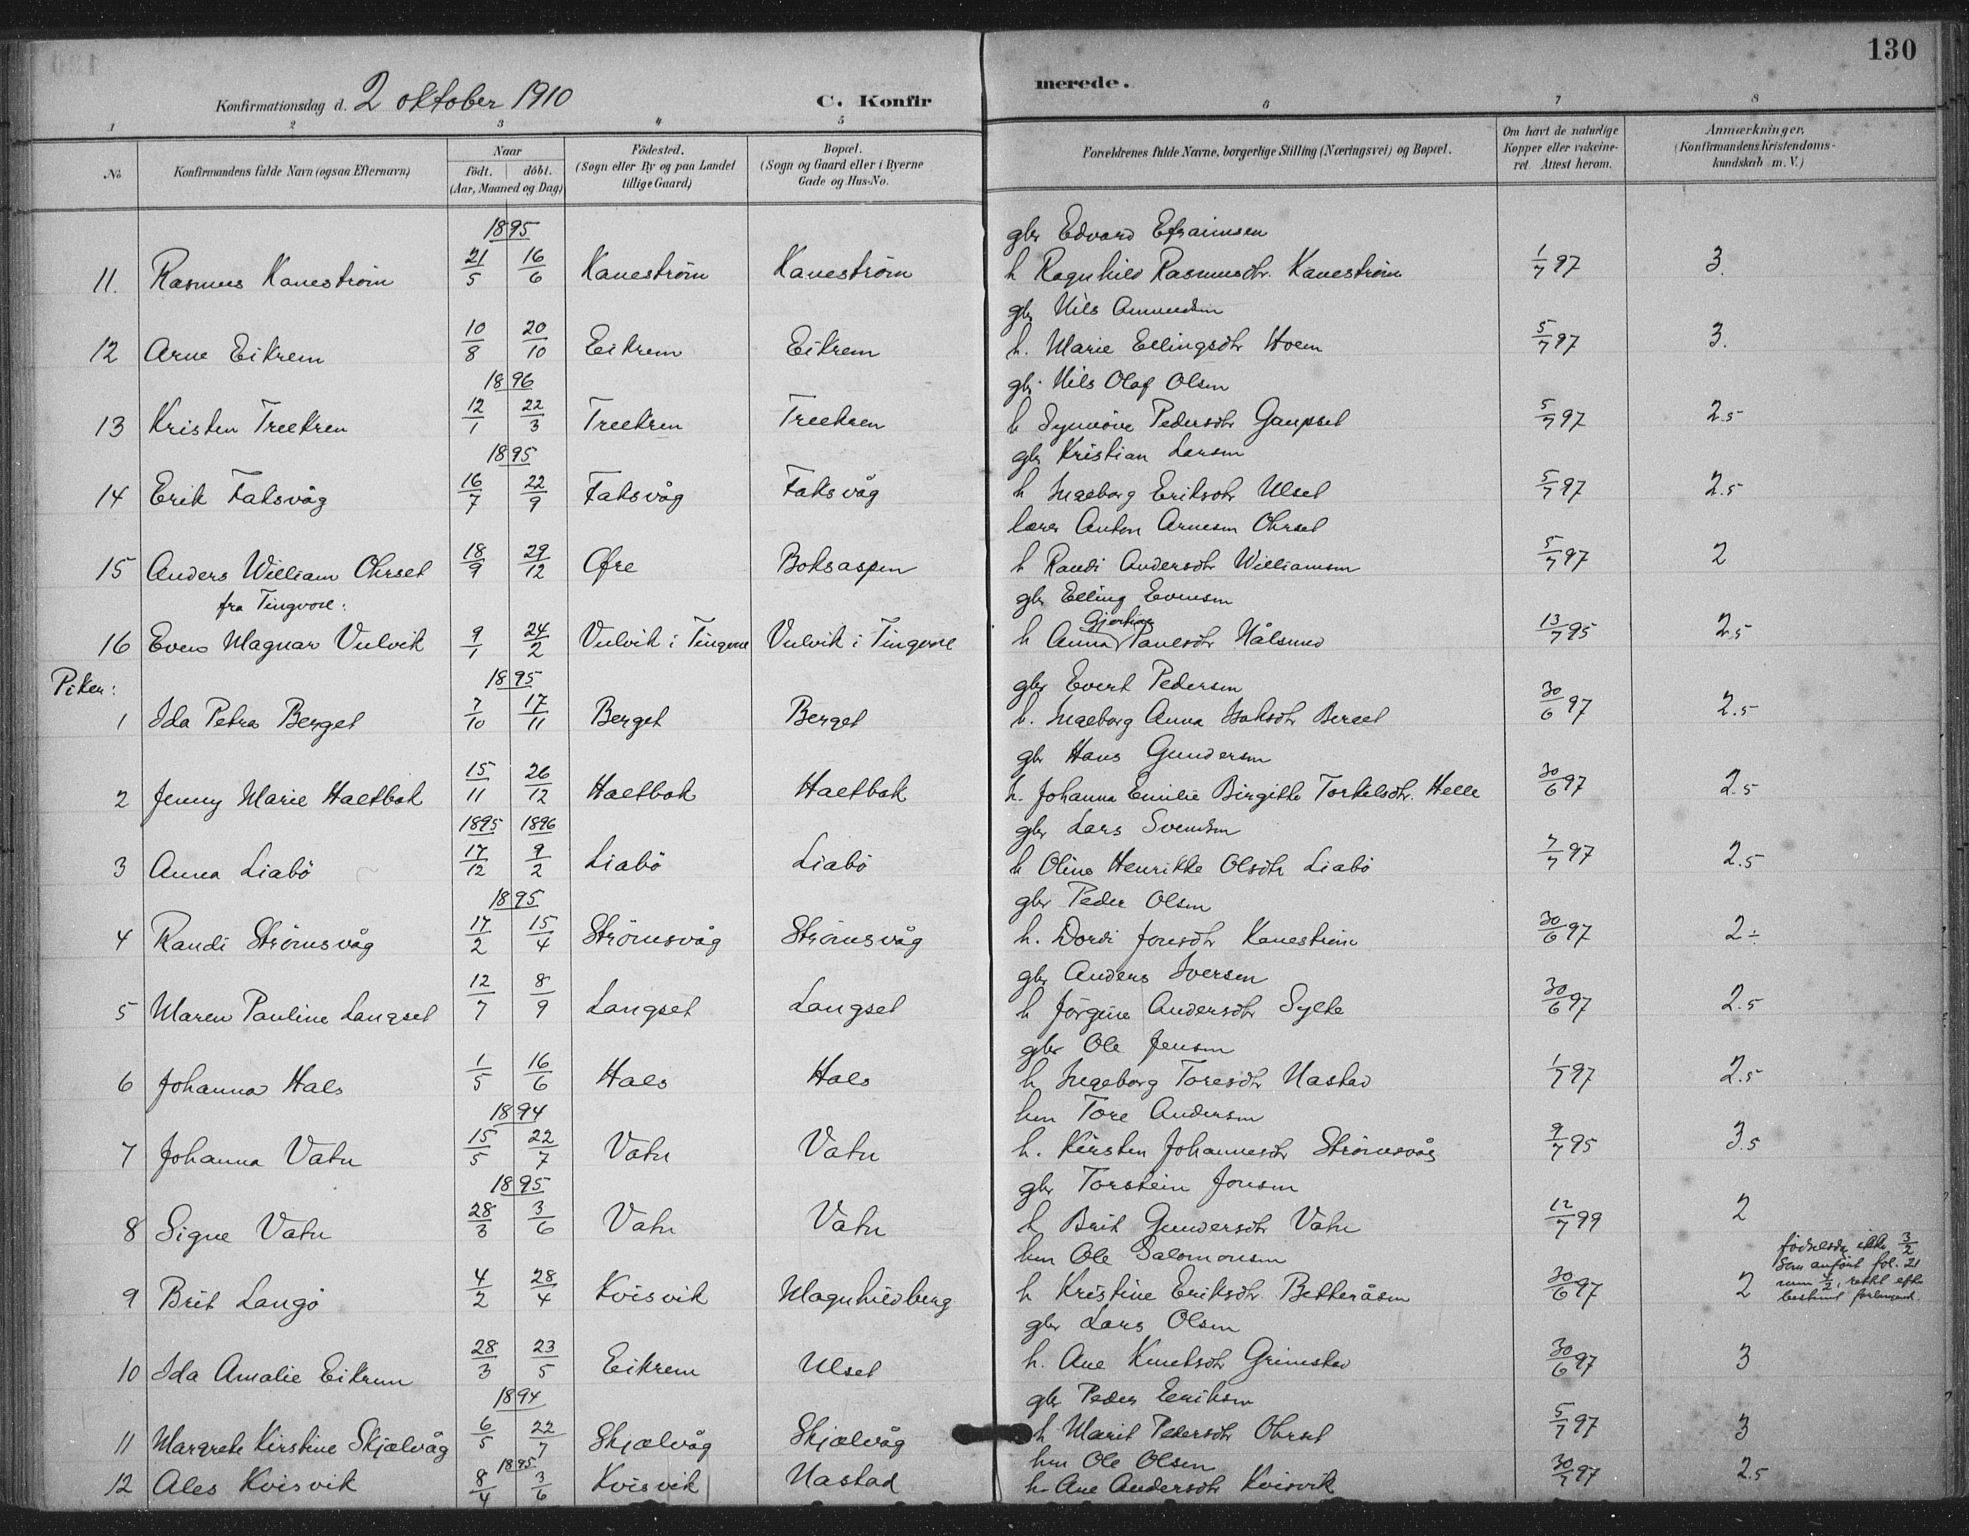 130
Konfirmationsdag d. 2 oktober 1910
C. Konfirmerede.
1 2 3 4 5 6 7 8
No
Konfirmandens fulde Navn (ogsaa Efternavn)
Naar
födt. döbt.
(Aar, Maaned og Dag)
Födested.
(Sogn eller By og paa Landet
tillige Gaard)
Bopæl.
(Sogn og Gaard eller i Byerne
Gade og Hus-No.
Forældrenes fulde Navne, borgerlige Stilling (Næringsvei) og Bopæl.
Om havt de naturlige
Kopper eller vakcine-
ret. Attest herom.
Anmærkninger.
(Konfirmandens Kristendoms-
kundskab m. V.)
1895
gbr Edvard Efraimsen
11. Rasmus Kaneström 21/5 16/6 Kaneström Kaneström h Ragnhild Rasmusdtr. Kaneström 1/7 97 3.
gbr Nils Amundsen
12 Arne Eikrem 10/8 20/10 Eikrem Eikrem h. Marie Ellingsdtr Hoem 5/7 97 3.
1896
gbr. Nils Olaf Olsen
13 Kristen Treekren 12/1 22/3 Treekren Treekren h Synnöve Pedersdtr Gaupset 5/7 97 2.5
1895
gbr Kristian Larsen
14 Erik Faksvåg 16/7 22/9 Faksvåg Faksvåg h Ingeborg Eriksdtr Ulset 5/7 97 2.5
lærer Anton Arnesen Ohrset
15 Anders William Ohrset 18/9 29/12 Øfre Boksaspen h Randi Andersdtr Williamsen 5/7 97 2
fra Tingvoll:
gbr Elling Evensen
16 Even Magnar Vulvik 9/1 24/2 Vulvik i Tingvoll Vulvik i Tingvoll h Anna Gjertine Paulsdtr Hålsund 13/7 95 2.5
Piker:
1895
gbr Evert Pedersen
1 Ida Petra Berget 7/10 17/11 Berget Berget h. Ingeborg Anna Isaksdtr Berget 30/6 97 2.5
gbr Hans Gundersen
2 Jenny Marie Haltbak 15/11 26/12 Haltbak Haltbak h. Johanna Emilie Birgitte Torkelsdtr. Helle 30/6 97 2.5
1895 1896
gbr Lars Svendsen
3 Anna Liabö 17/12 9/2 Liabö Liabö h Oline Henrikke Olsdtr Liabö 7/7 97 2.5
1895
gbr Peder Olsen
4 Randi Strömsvåg 17/2 15/4 Strömsvåg Strömsvåg h. Dordi Jonsdtr Kaneström 30/6 97 2÷
gbr Anders Iversen
5 Maren Pauline Langset 12/7 8/9 Langset Langset h Jörgine Andersdtr Sylte 30/6 97 2.5
gbr Ole Jensen
6 Johanna Hals 1/5 16/6 Hals Hals h Ingeborg Toresdtr Nastad 1/7 97 2.5
1894
hm Tore Andersen
7 Johanna Vatn 15/5 22/7 Vatn Vatn h. Kirsten Johannesdtr Strömsvåg 9/7 95 3.5
1895
gbr Torstein Jonsen
8 Signe Vatn 28/3 3/6 Vatn Vatn h Brit Gundersdtr Vatn 12/7 99 2
hm Ole Salomonsen
9 Brit Langö 4/2 28/4 Kvisvik Magnhildberg h Kristine Eriksdtr. Betteråsen 30/6 97 2 födselsdag ikke 3/2
som anfört fol. 21
men 4/2, rettet efter
bestemt forlangend.
gbr Lars Olsen
10 Ida Amalie Eikrem 28/3 23/5 Eikrem Ulset h. Ane Knutsdtr Grimstad 30/6 97 3
1894
gbr Peder Eriksen
11 Margrete Kirstine Skjelvåg 6/5 22/7 Skjelvåg Skjelvåg h Marit Pedersdtr Ohrset 5/7 97 3
1895
hm Ole Olsen
12 Ales Kvisvik 8/4 3/6 Kvisvik Nastad h. Ane Andersdtr Kvisvik 30/7 97 2.5